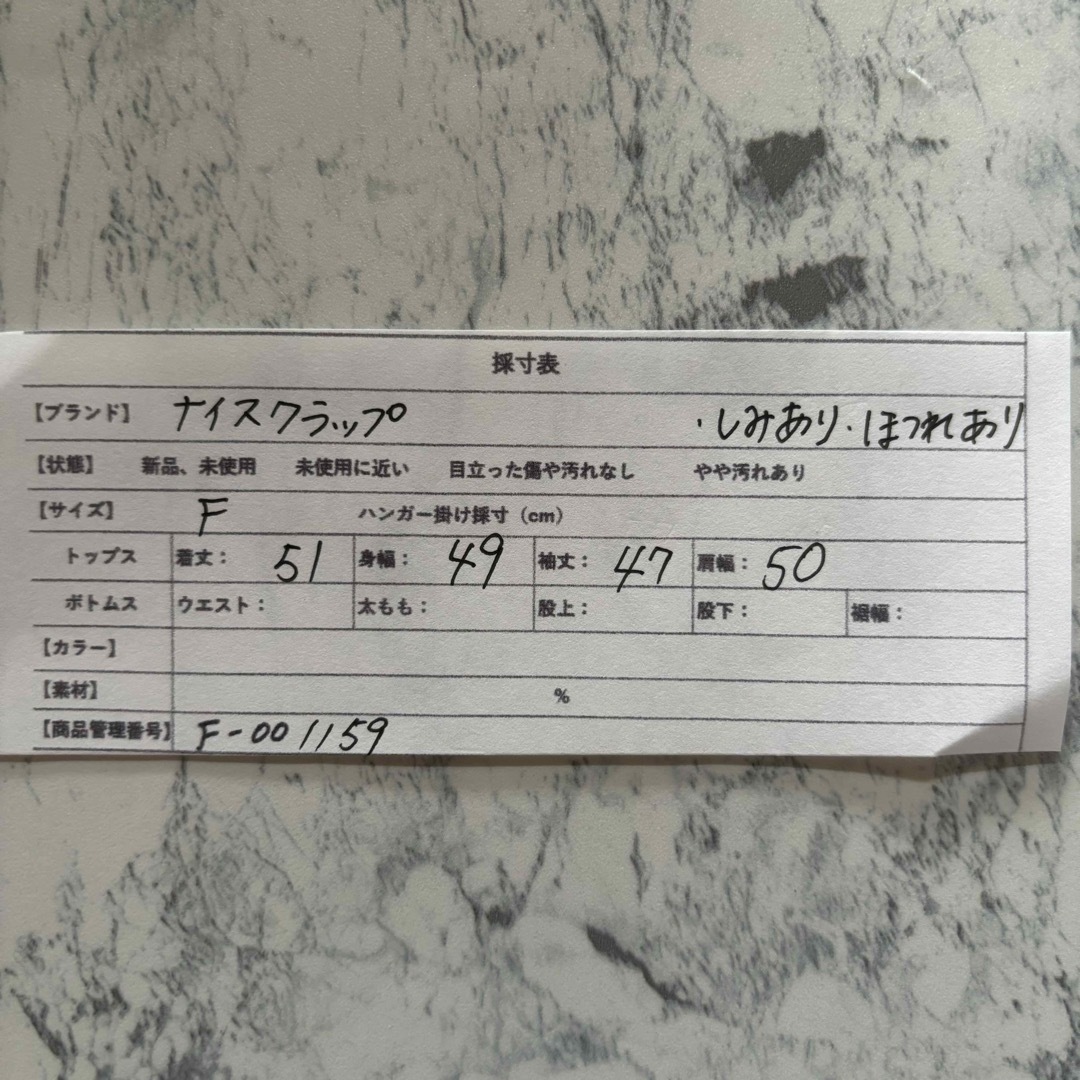 採寸表
【ブランド】 ナイスクラップ ・しみあり・ほつれあり
【状態】 新品、未使用 未使用に近い 目立った傷や汚れなし やや汚れあり
【サイズ】 F ハンガー掛け採寸（cm）
トップス 着丈： 51 身幅： 49 袖丈： 47 肩幅： 50
ボトムス ウエスト： 太もも： 股上： 股下： 裾幅：
【カラー】
【素材】 %
【商品管理番号】 F-001159